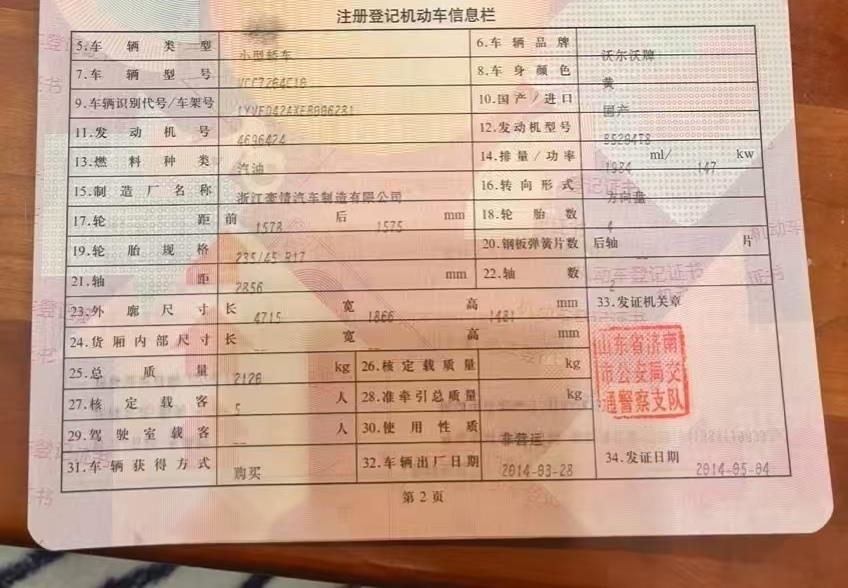 注册登记机动车信息栏
5.车辆类型 小型轿车 6.车辆品牌 沃尔沃牌
7.车辆型号 8.车身颜色 黄
9.车辆识别代号/车架号 10.国产/进口 国产
11.发动机号 4696424 12.发动机型号
13.燃料种类 汽油 14.排量/功率 1984 ml/ 147 kw
15.制造厂名称 浙江豪情汽车制造有限公司 16.转向形式 方向盘
17.轮距 前 1578 后 1575 mm 18.轮胎数 4
19.轮胎规格 235/45 R17 20.钢板弹簧片数 后轴 -- 片
21.轴距 2856 mm 22.轴数 2
23.外廓尺寸 长 4715 宽 1866 高 1481 mm 33.发证机关章
24.货厢内部尺寸 长 -- 宽 -- 高 -- mm
山东省济南
市公安局交
通警察支队
25.总质量 2120 kg 26.核定载质量 -- kg
27.核定载客 5 人 28.准牵引总质量 -- kg
29.驾驶室载客 -- 人 30.使用性质 非营运
31.车辆获得方式 购买 32.车辆出厂日期 2014-03-28 34.发证日期 2014-05-04
第2页